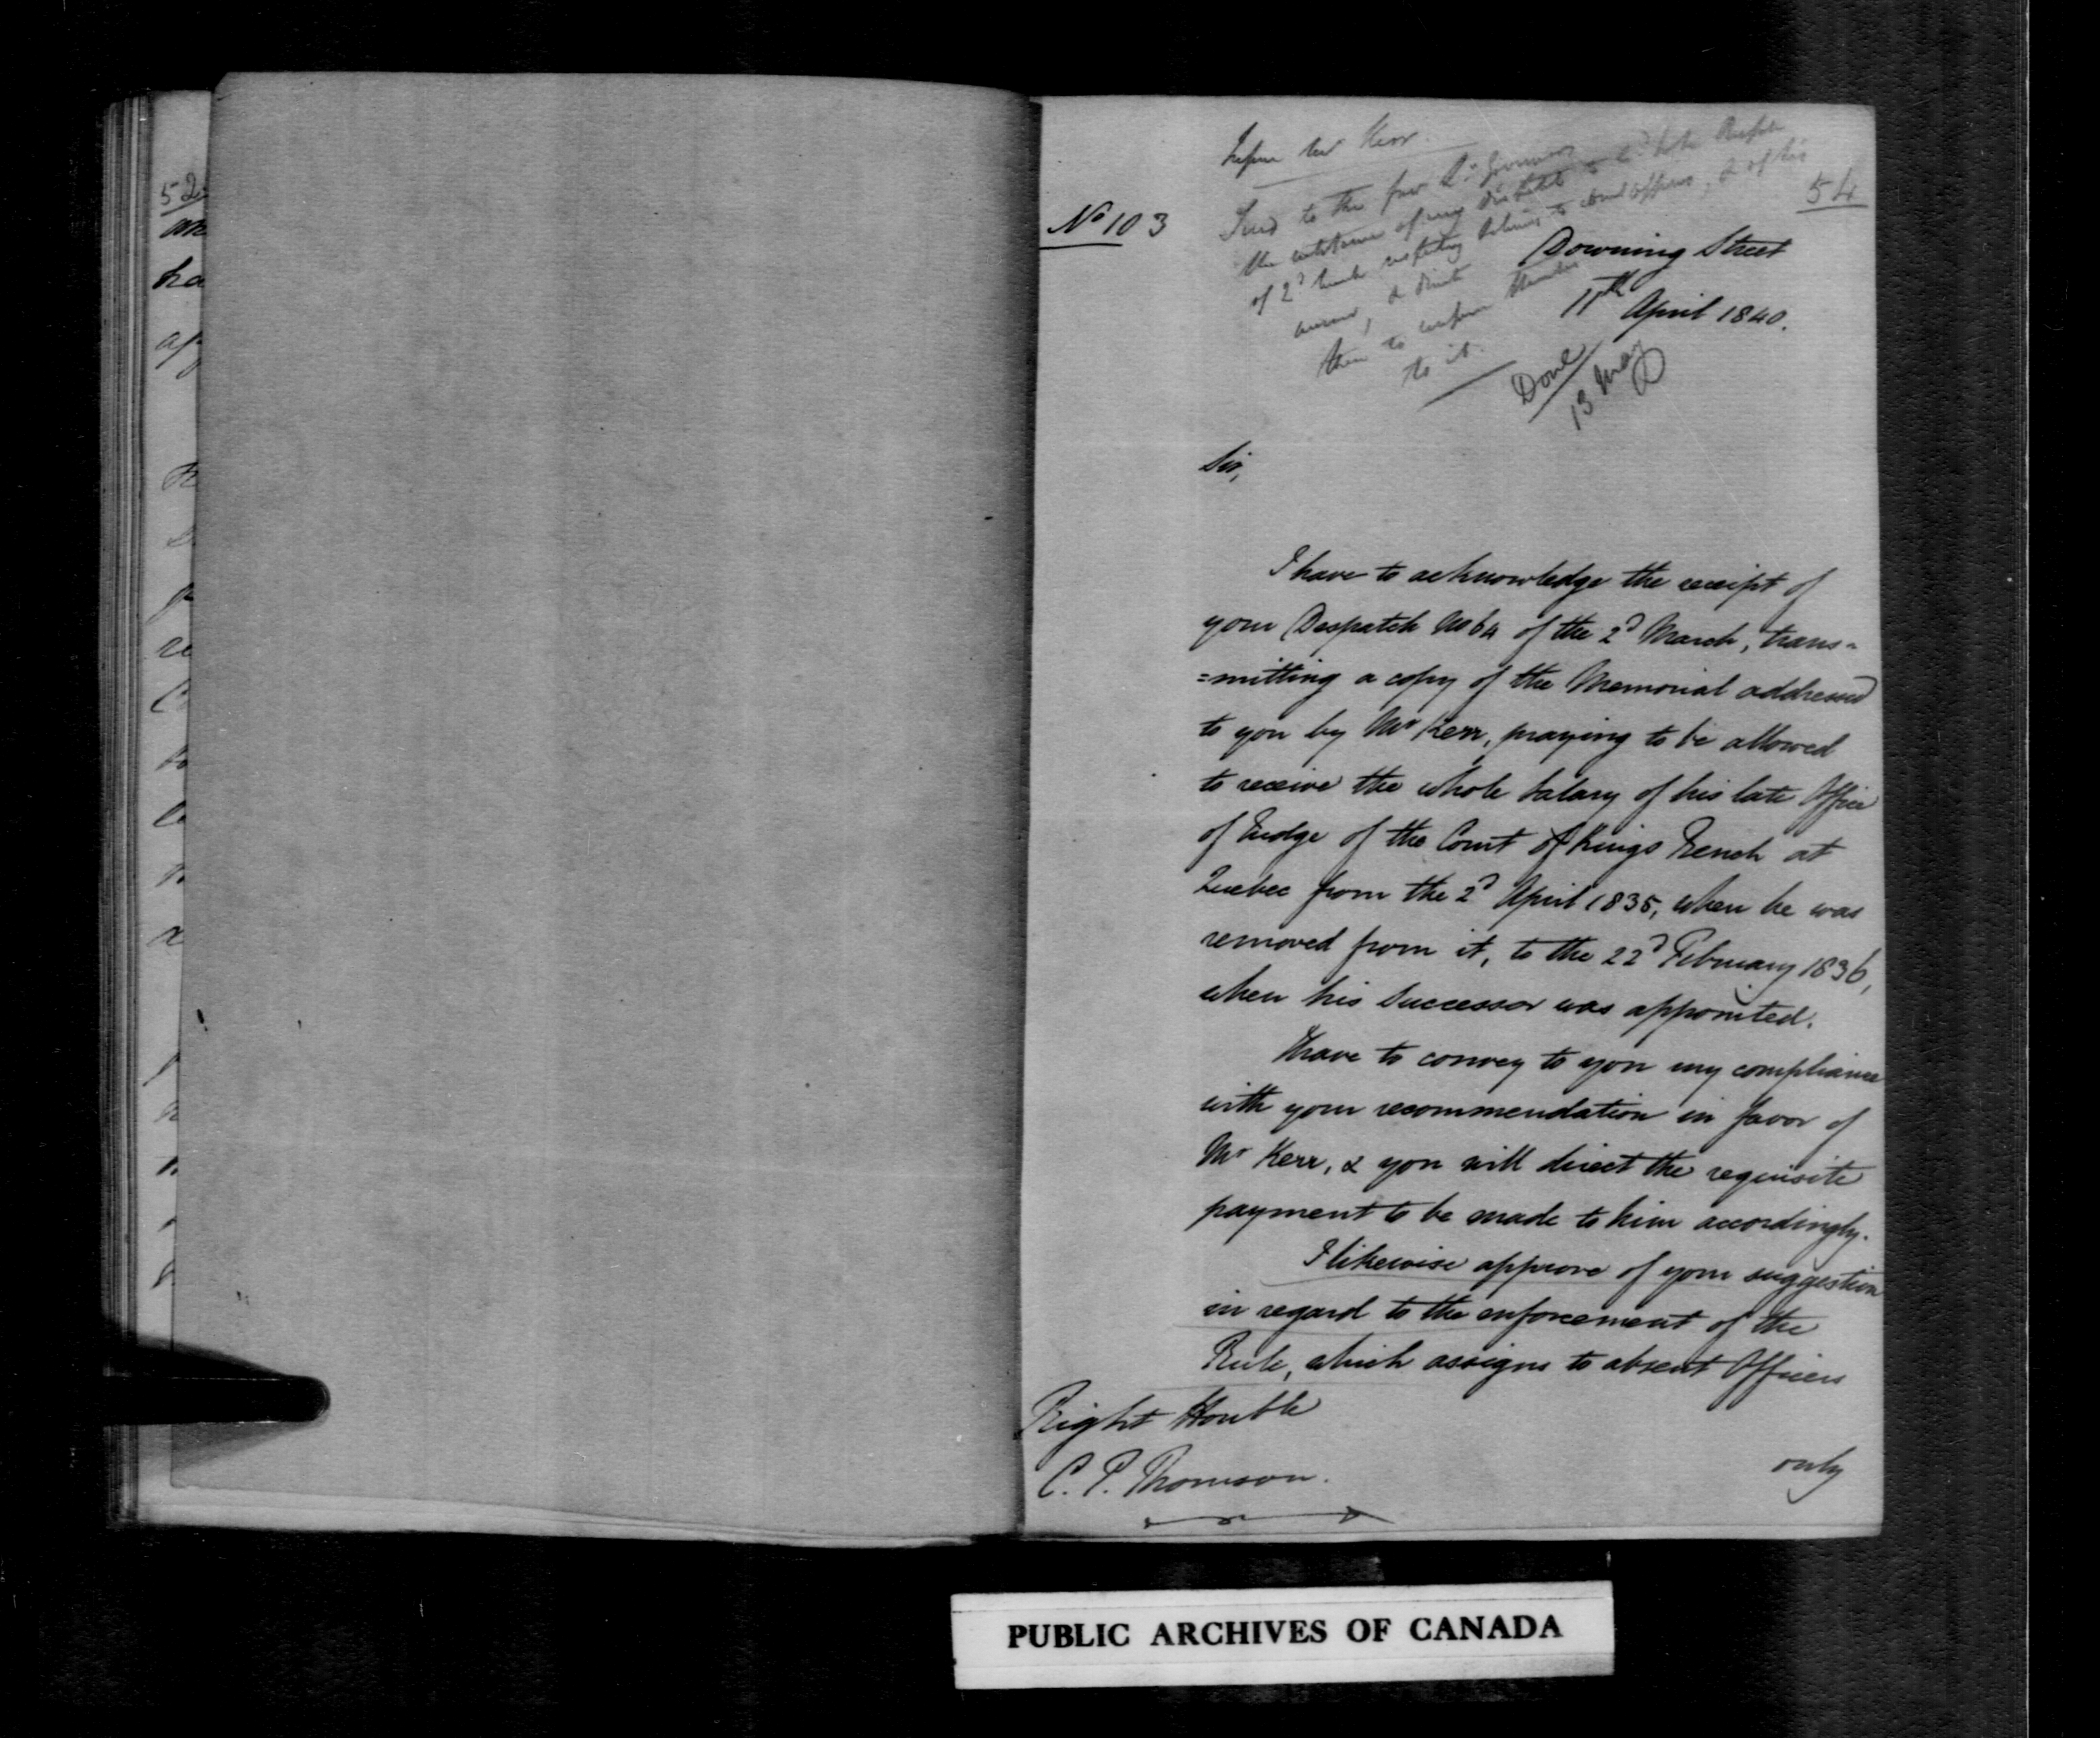 52
Inform Mr Kerr.
Send to the four Lt Governors
the substance of my despatch to Ld John Russell
of 2d March respecting Salaries to absent officers, & of his
answer, & direct
them to conform themselves
to it.
No 103
54
Downing Street
11th April 1840.
Done
13 May
Sir,
I have to acknowledge the receipt of
your Despatch No 64 of the 2d March, trans-
=mitting a copy of the Memorial addressed
to you by Mr Kerr, praying to be allowed
to receive the whole Salary of his late Office
of Judge of the Court of Kings Bench at
Quebec from the 2d April 1835, when he was
removed from it, to the 22d February 1836,
when his Successor was appointed.
I have to convey to you my compliance
with your recommendation in favor of
Mr Kerr, & you will direct the requisite
payment to be made to him accordingly.
I likewise approve of your suggestion
in regard to the enforcement of the
Rule, which assigns to absent Officers
Right Honble
C. P. Thomson.
only
PUBLIC ARCHIVES OF CANADA